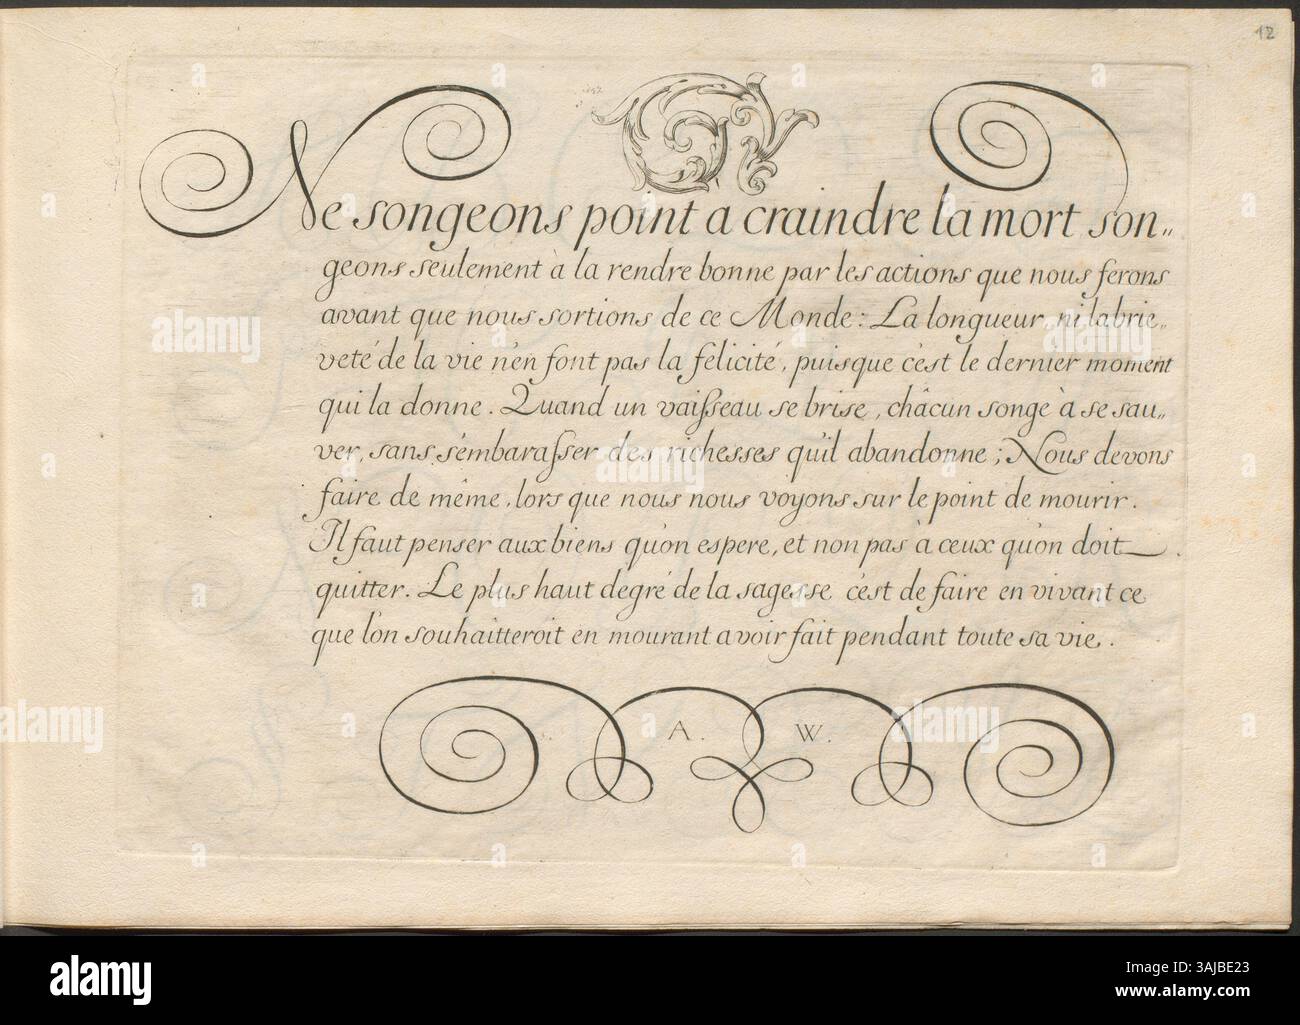 12
Ne songeons point a craindre la mort son„
geons seulement à la rendre bonne par les actions que nous ferons
avant que nous sortions de ce Monde: La longueur, ni la brie„
veté de la vie n'en font pas la félicité, puisque c'est le dernier moment
qui la donne. Quand un vaiſseau se brise, châcun songe à se sau„
ver, sans s'embaraſser des richesses qu'il abandonne; Nous devons
faire de même, lors que nous nous voyons sur le point de mourir.
Il faut penser aux biens qu'on espere, et non pas à ceux qu'on doit
quitter. Le plus haut degré de la sagesse c'est de faire en vivant ce
que l'on souhaitteroit en mourant avoir fait pendant toute sa vie.
A. W.
alamy
Image ID: 3AJBE23
www.alamy.com